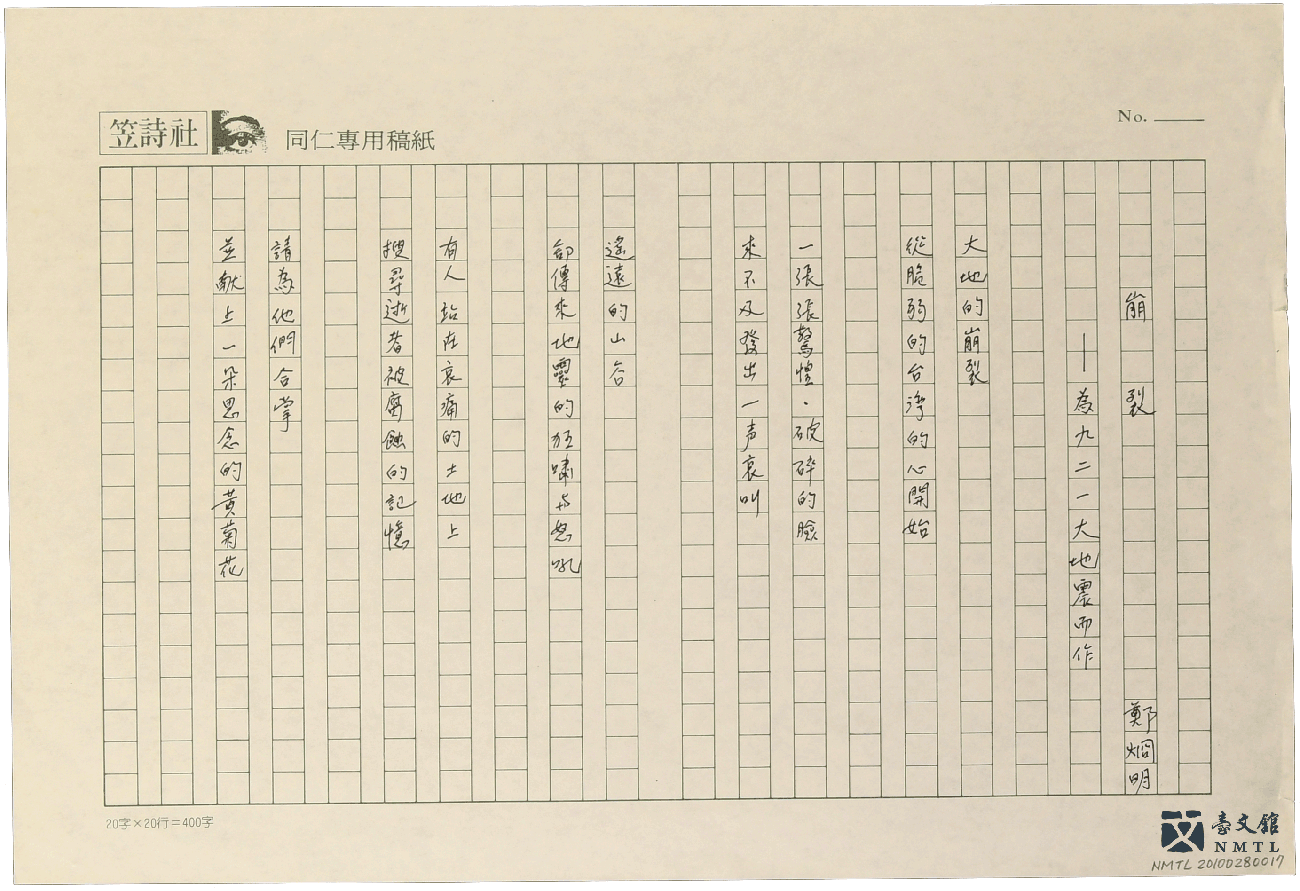 笠詩社
同仁專用稿紙
No.
崩裂
鄭烱明
——為九二一大地震而作
大地的崩裂
從脆弱的台湾的心開始
一張張驚惶、破碎的臉
來不及發出一声哀叫
遙遠的山谷
卻傳來地靈的狂嘯与怒吼
有人站在哀痛的土地上
搜尋逝者被腐蝕的記憶
請為他們合掌
並献上一朵思念的黃菊花
20字×20行=400字
臺文館
NMTL
NMTL 20100280017